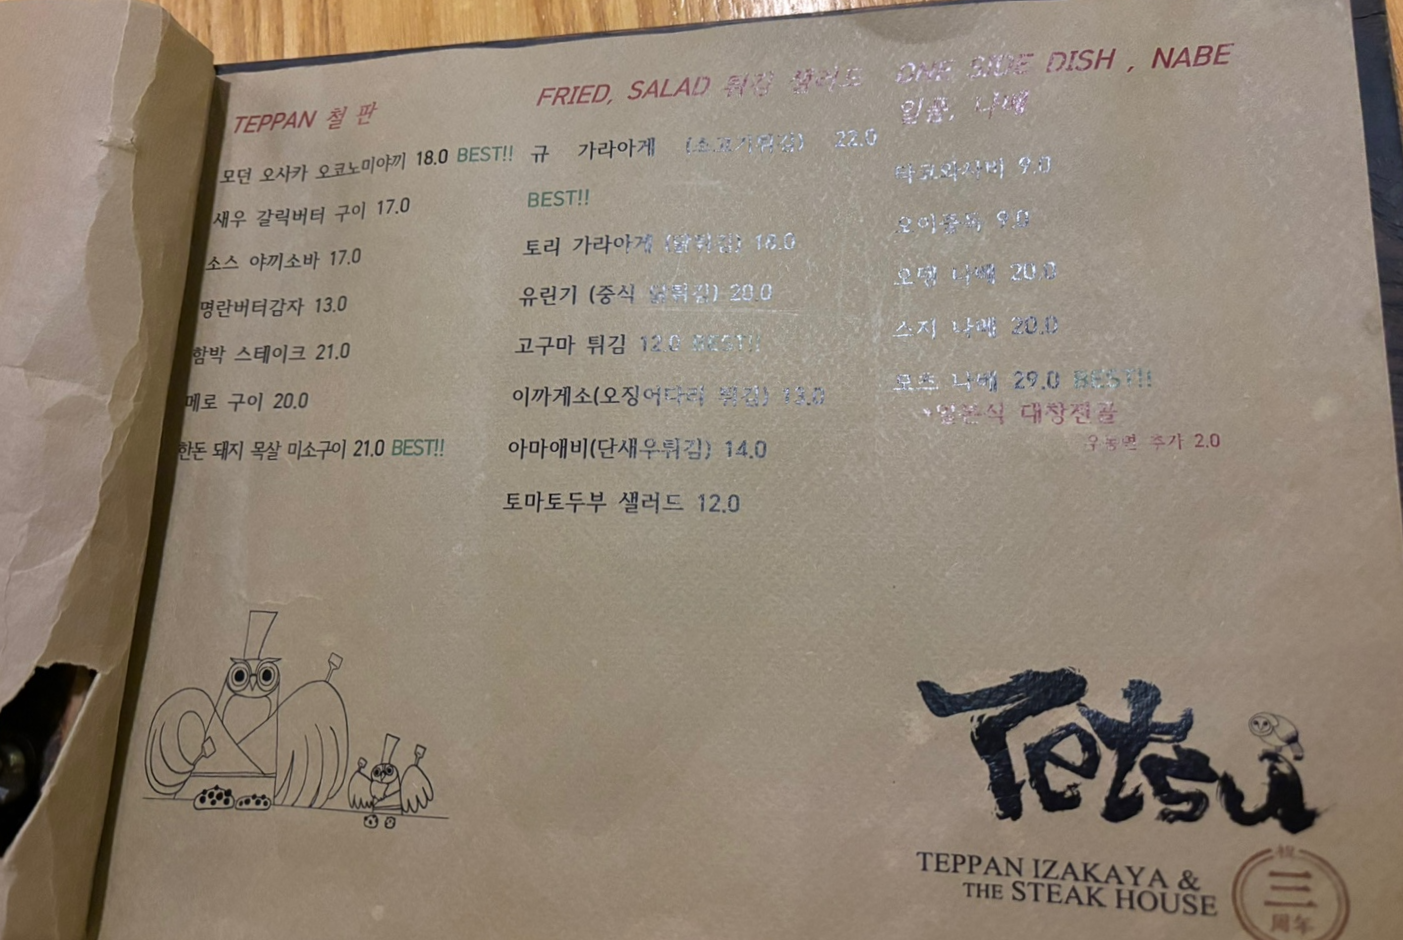 TEPPAN 철 판
모던 오사카 오코노미야끼 18.0 BEST!!
새우 갈릭버터 구이 17.0
소스 야끼소바 17.0
명란버터감자 13.0
함박 스테이크 21.0
메로 구이 20.0
한돈 돼지 목살 미소구이 21.0 BEST!!
FRIED, SALAD 튀김 샐러드
규 가라아게 (소고기튀김) 22.0
BEST!!
토리 가라아게 (닭튀김) 18.0
유린기 (중식 닭튀김) 20.0
고구마 튀김 12.0 BEST!!
이까게소(오징어다리 튀김) 13.0
아마애비(단새우튀김) 14.0
토마토두부 샐러드 12.0
ONE SIDE DISH , NABE
일품, 나베
타코와사비 9.0
오이 9.0
오뎅 나베 20.0
스지 나베 20.0
모츠 나베 29.0 BEST!!
일본식 대창전골
우동면 추가 2.0
Tetsu
TEPPAN IZAKAYA &
THE STEAK HOUSE
祝
三
周年